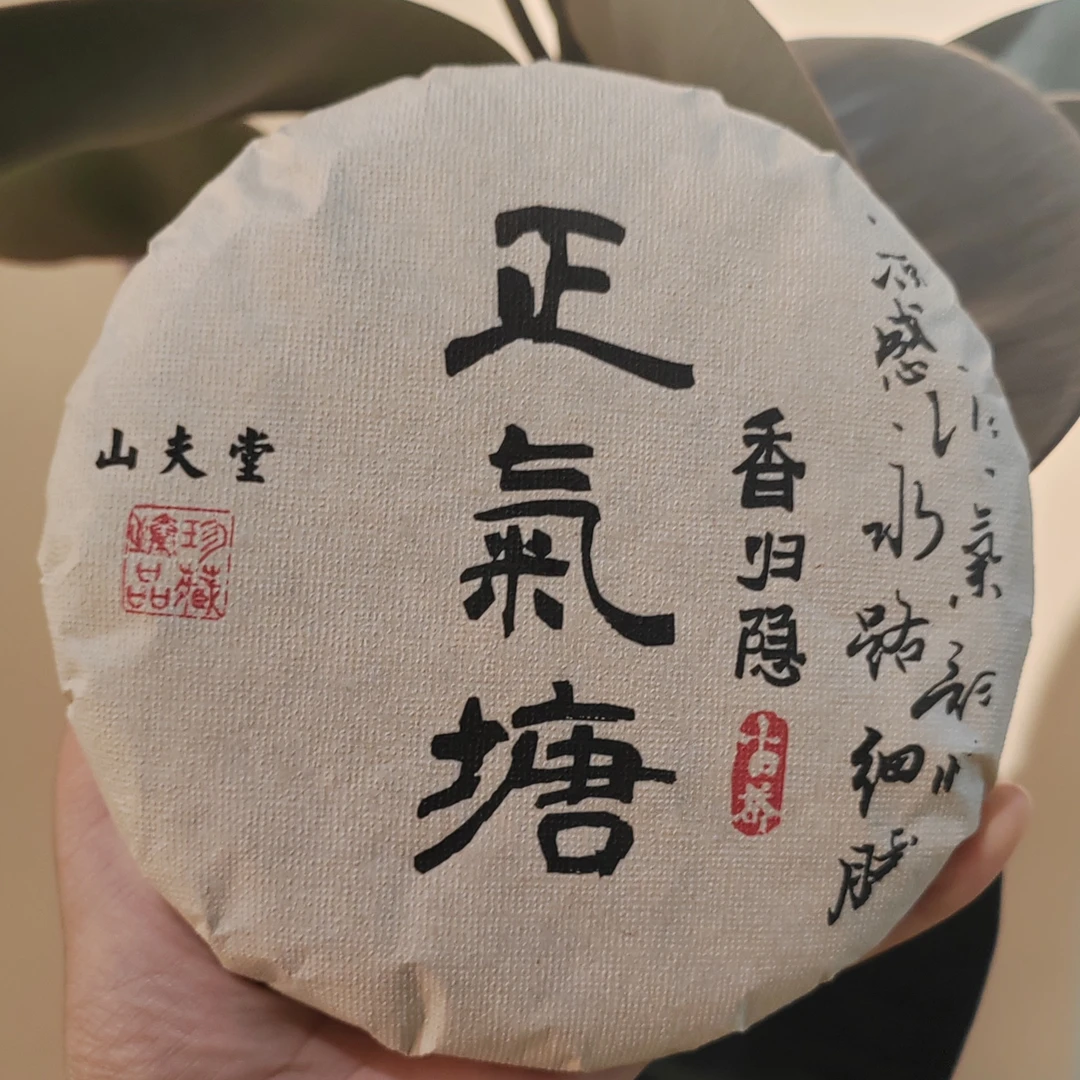 氣
感
水路细腻
香归隐
古茶
正氣塘
山夫堂
珍藏
臻品